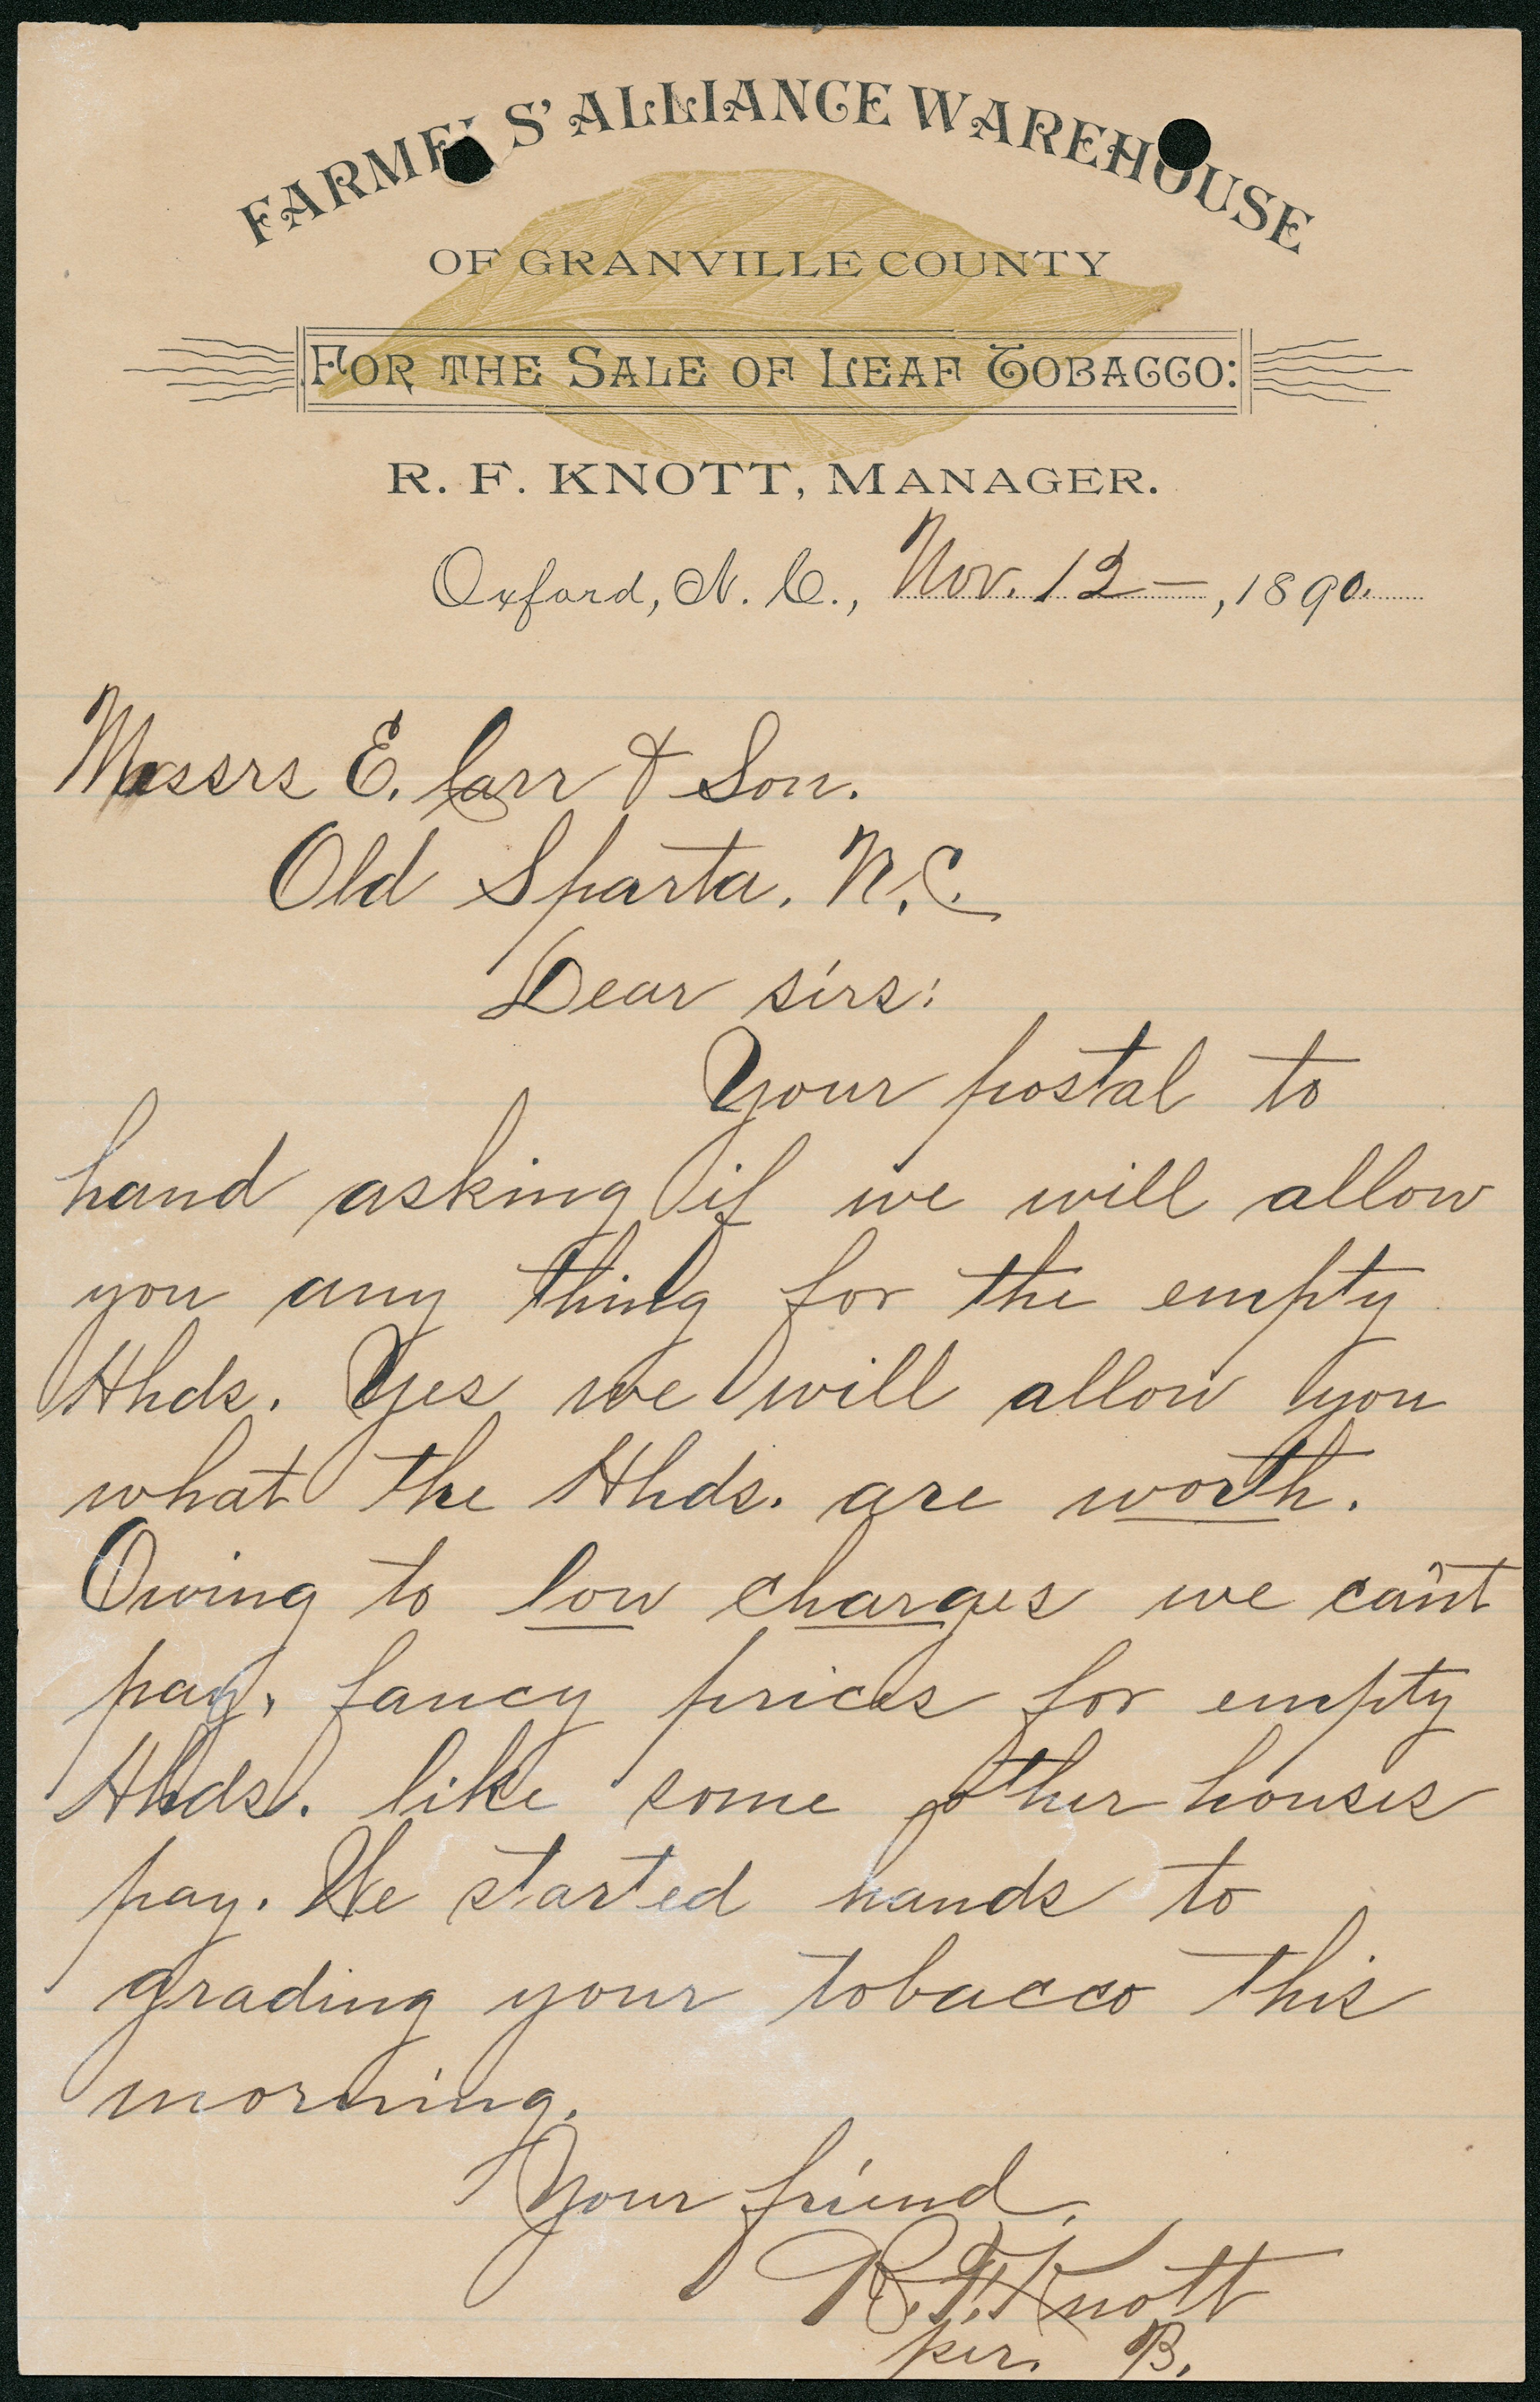 FARMERS' ALLIANCE WAREHOUSE
OF GRANVILLE COUNTY
FOR THE SALE OF LEAF TOBACCO:
R. F. KNOTT, MANAGER.
Oxford, N. C., Nov. 12 — , 1890.
Messrs E. Carr & Son.
Old Sparta, N.C.
Dear sirs:
Your postal to
hand asking if we will allow
you any thing for the empty
Hhds. Yes we will allow you
what the Hhds. are worth.
Owing to low charges we can't
pay, fancy prices for empty
Hhds. like some other houses
pay. We started hands to
grading your tobacco this
morning.
Your friend,
R. F. Knott
per. B.